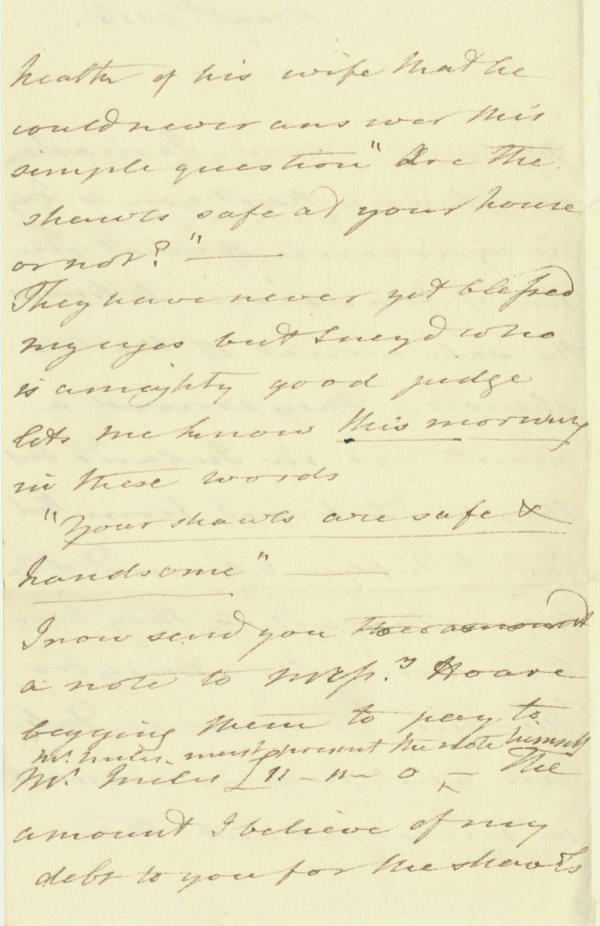 health of his wife that he
could never answer this
simple question "Are the
shawls safe at your house
or not?" —
They have never yet blessed
my eyes but Sneyd who
is a mighty good judge
lets me know this morning
in these words
"Your shawls are safe &
handsome" —
I now send you
a note to Messrs. Hoare
begging them to pay to
Mr. must present the note himself
Mr. £11 – 11 – 0 – The
amount I believe of my
debt to you for the shawls